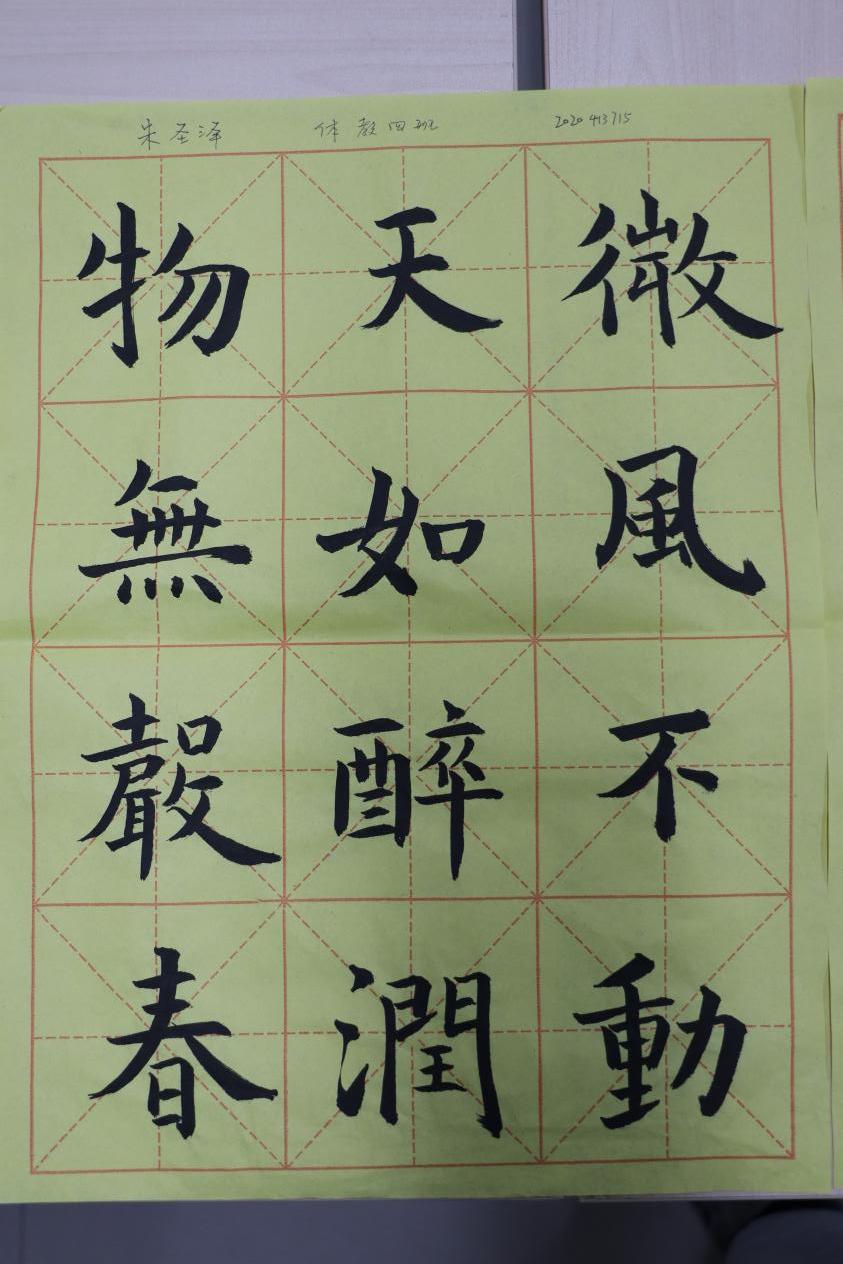 朱圣泽 体教四班 2020413715
微風不動
天如醉潤
物無聲春